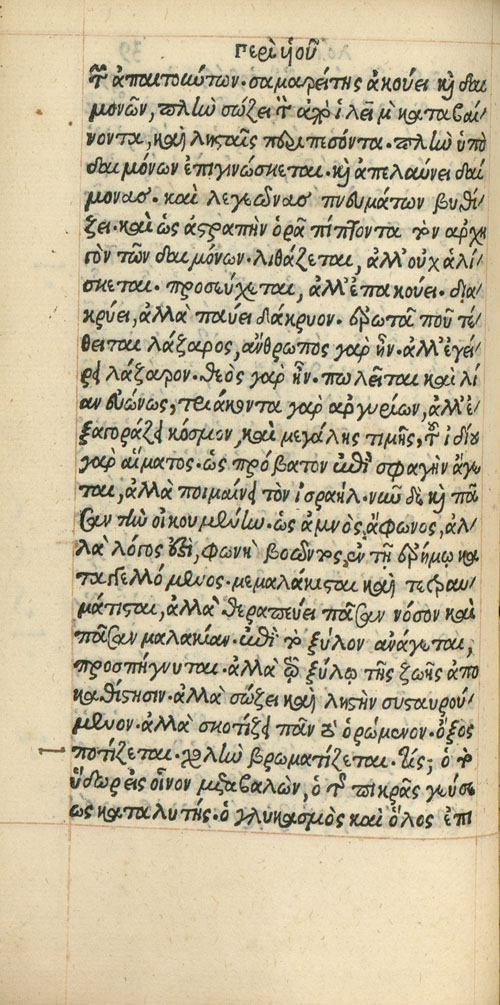 Περὶ υἱοῦ
τῶν ἀπαιτούντων. σαμαρείτης ἀκούει καὶ δαι
μονῶν, πλὴν σώζει τὸν ἀπὸ ἱλεῒμ καταβαί
νοντα, καὶ λῃσταῖς περιπεσόντα. πλὴν ὑπὸ
δαιμόνων ἐπιγινώσκεται. καὶ ἀπελαύνει δαί
μονας. καὶ λεγεῶνας πνευμάτων βυθί
ζει. καὶ ὡς ἀστραπὴν ὁρᾷ πίπτοντα τὸν ἀρχη
γὸν τῶν δαιμόνων. λιθάζεται, ἀλλ' οὐχ ἁλί
σκεται. προσεύχεται, ἀλλ' ἐπακούει. δα
κρύει, ἀλλὰ παύει δάκρυον. ἐρωτᾷ ποῦ τέ
θειται λάζαρος, ἄνθρωπος γὰρ ἦν. ἀλλ' ἐγεί
ρει λάζαρον. θεὸς γὰρ ἦν. πωλεῖται καὶ λί
αν εὐώνως, τριάκοντα γὰρ ἀργυρίων, ἀλλ' ἐ
ξαγοράζει κόσμον, καὶ μεγάλης τιμῆς, τοῦ ἰδίου
γὰρ αἵματος. ὡς πρόβατον ἐπὶ σφαγὴν ἄγε
ται, ἀλλὰ ποιμαίνει τὸν ἰσραήλ. νῦν δὲ καὶ πᾶ
σαν τὴν οἰκουμένην. ὡς ἀμνὸς ἄφωνος, ἀλ
λὰ λόγος ἐστὶ, φωνῇ βοῶντος ἐν τῇ ἐρήμῳ κα
ταγγελλόμενος. μεμαλάκισται καὶ τετραυ
μάτισται, ἀλλὰ θεραπεύει πᾶσαν νόσον καὶ
πᾶσαν μαλακίαν. ἐπὶ τὸ ξύλον ἀνάγεται,
προσπήγνυται. ἀλλὰ τῷ ξύλῳ τῆς ζωῆς ἀπο
καθίστησιν. ἀλλὰ σώζει καὶ λῃστὴν συσταυρού
μενον. ἀλλὰ σκοτίζει πᾶν τὸ ὁρώμενον. ὄξος
ποτίζεται. χολὴν βρωματίζεται. τίς; ὁ τὸ
ὕδωρ εἰς οἶνον μεταβαλὼν, ὁ τῆς πικρᾶς γεύσε
ως καταλυτής. ὁ γλυκασμὸς καὶ ὅλος ἐπι